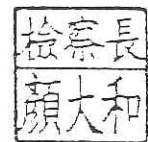 檢察長
顏大和